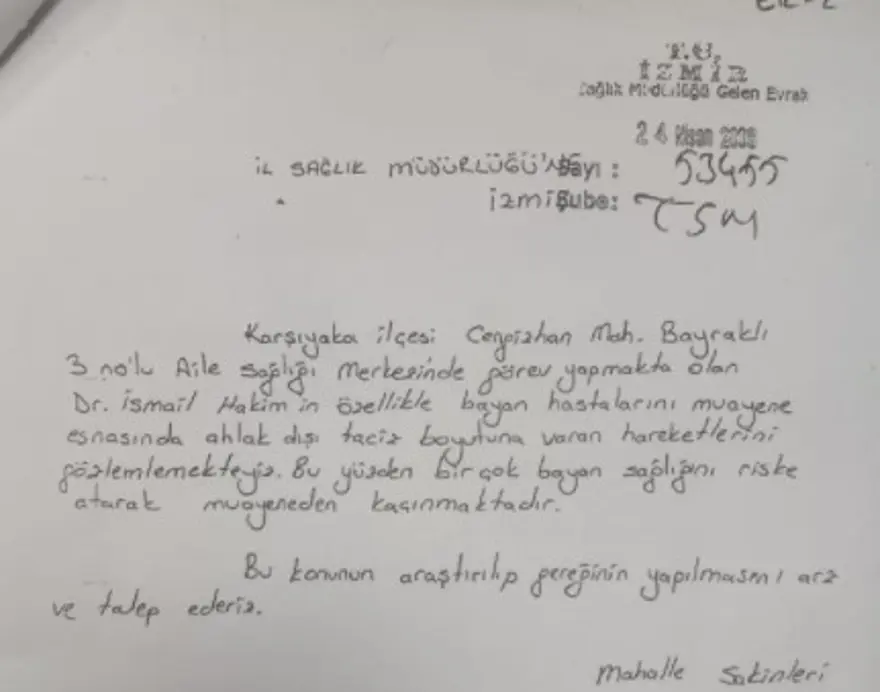 T.C.
İZMİR
Sağlık Müdürlüğü Gelen Evrak
24 Nisan
İL SAĞLIK MÜDÜRLÜĞÜ'NE Sayı : 53455
İzmir Şube: TSM
Karşıyaka ilçesi Cengizhan Mah. Bayraklı
3 no'lu Aile sağlığı Merkezinde görev yapmakta olan
Dr. İsmail Hakim in özellikle bayan hastalarını muayene
esnasında ahlak dışı taciz boyutuna varan hareketlerini
gözlemlemekteyiz. Bu yüzden bir çok bayan sağlığını riske
atarak muayeneden kaçınmaktadır.
Bu konunun araştırılıp gereğinin yapılmasını arz
ve talep ederiz.
Mahalle Sakinleri